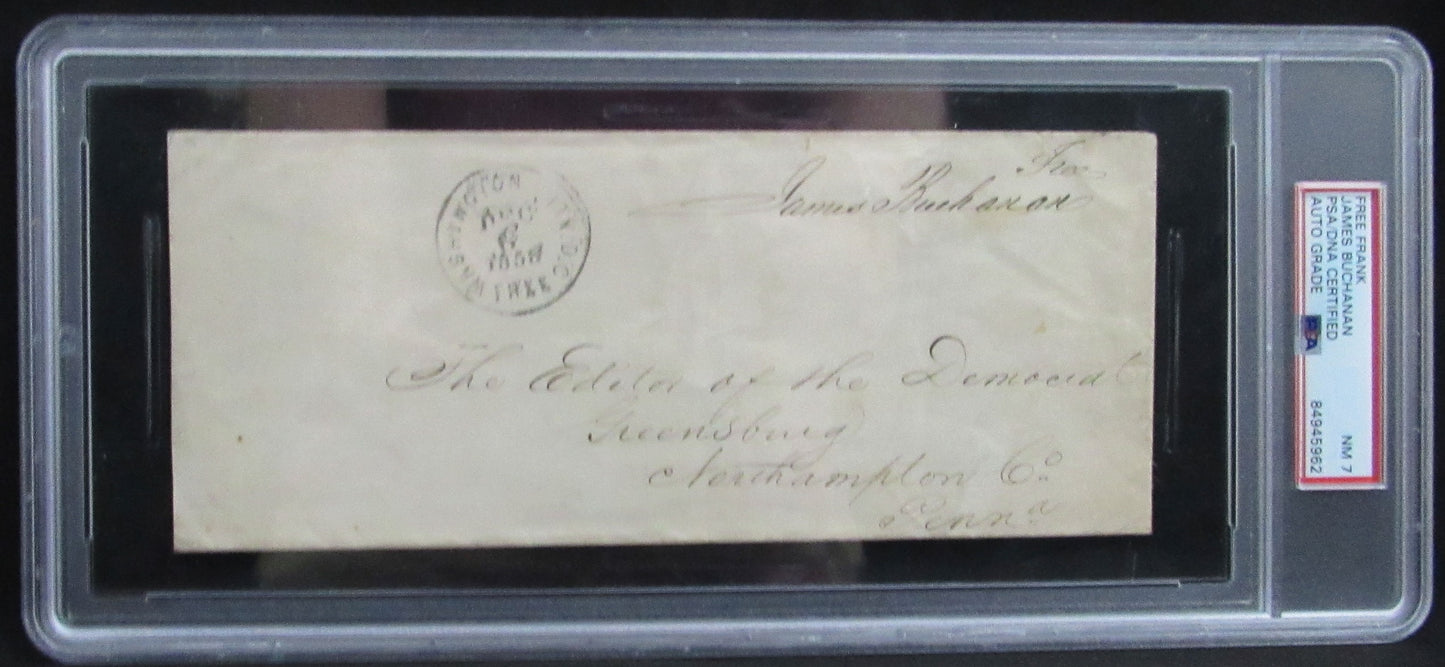 Free
James Buchanan
WASHINGTON CITY D.C.
6
1858
FREE
The Editor of the Democrat
Greensburg
Northampton Co.
Penna
FREE FRANK
JAMES BUCHANAN
PSA/DNA CERTIFIED
AUTO GRADE NM 7
PSA 84945962